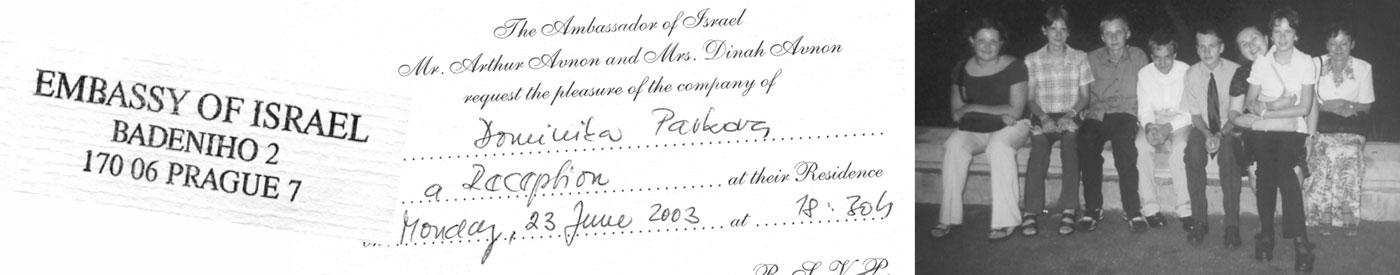 EMBASSY OF ISRAEL
BADENIHO 2
170 06 PRAGUE 7
The Ambassador of Israel
Mr. Arthur Avnon and Mrs. Dinah Avnon
request the pleasure of the company of
Dominika
a Reception at their Residence
on Monday, 23 June 2003 at 18:30h
R.S.V.P.